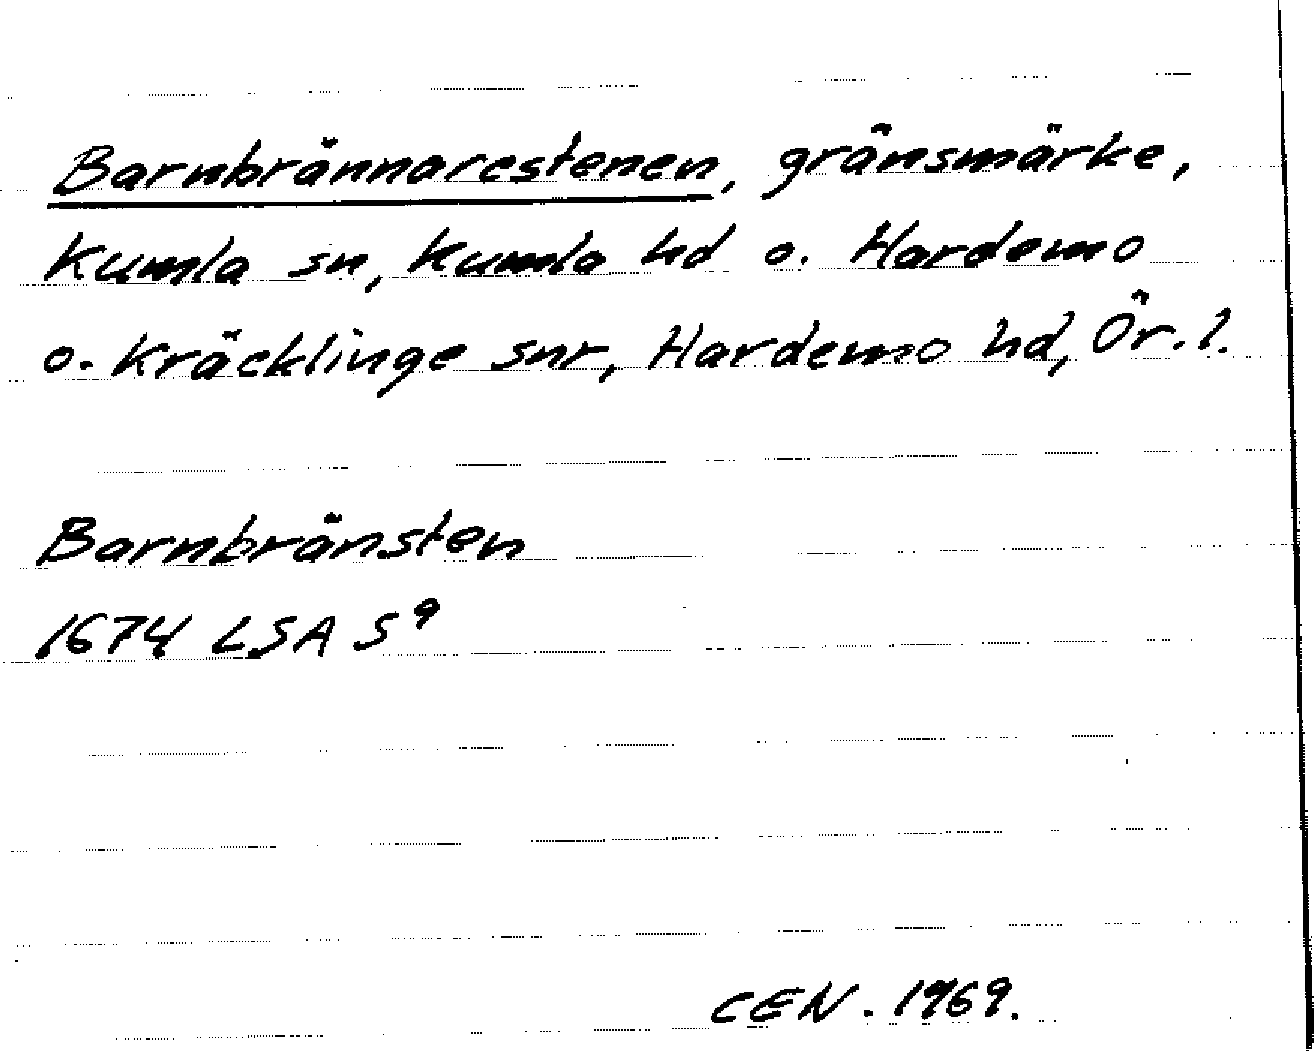 Barnbrännarestenen, gränsmärke,
Kumla sn, Kumla hd o. Hardemo
o. Kräcklinge snr, Hardemo hd, Ör. l.
Barnbränsten
1674 LSA S⁹
CEN. 1969.